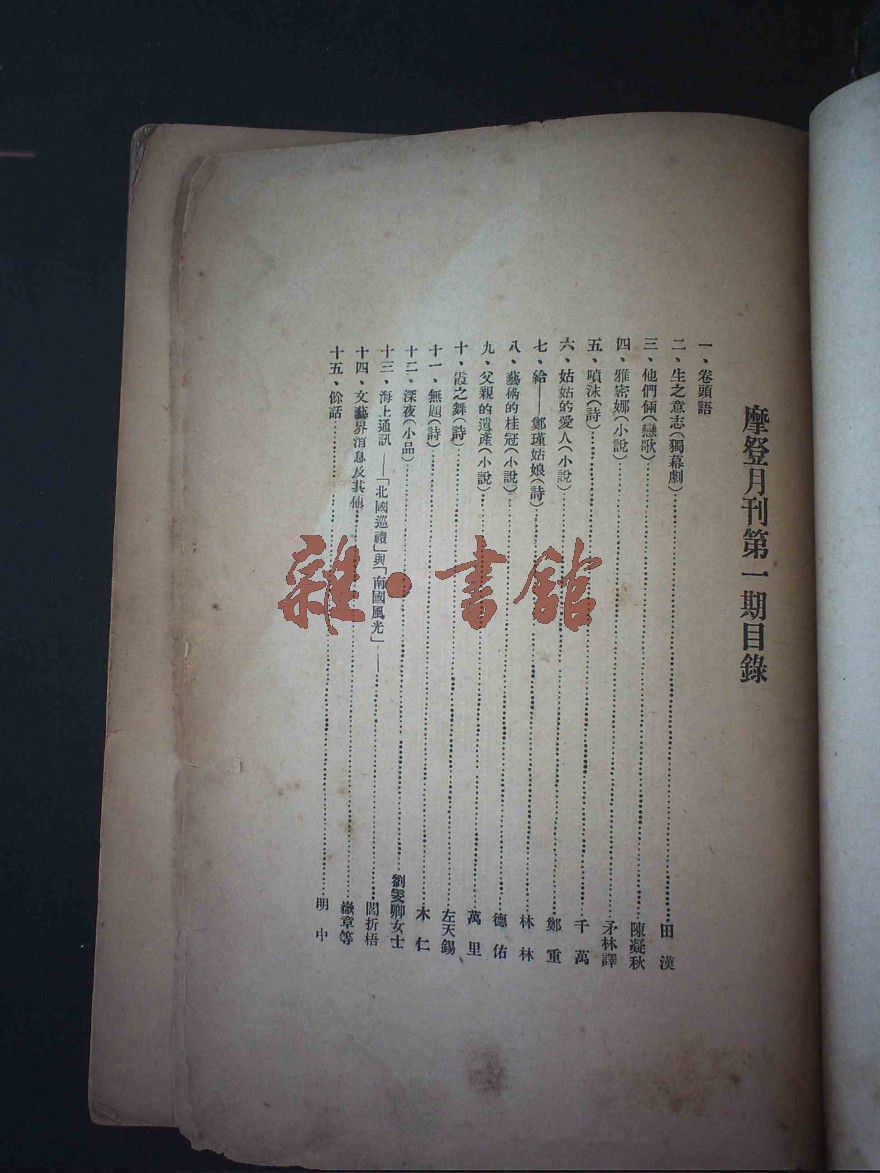 摩登月刊第一期目錄
一、卷頭語
二、生之意志(獨幕劇)……田漢
三、他們倆(戀歌)……陳凝秋
四、雅密娜(小說)……矛林譯
五、噴沫(詩)……千萬
六、姑姑的愛人(小說)……鄭重
七、給——鄭瑾姑娘(詩)……林林
八、藝術的桂冠(小說)……德佑
九、父親的遺產(小說)……萬里
十、霞之舞(詩)……左天錫
十一、無題(詩)……木仁
十二、深夜(小品)……劉雯卿女士
十三、海上通訊——「北國巡禮」與「南國風光」——……閻折梧
十四、文藝界消息及其他……嶽章等
十五、餘話……明中
雜·書館